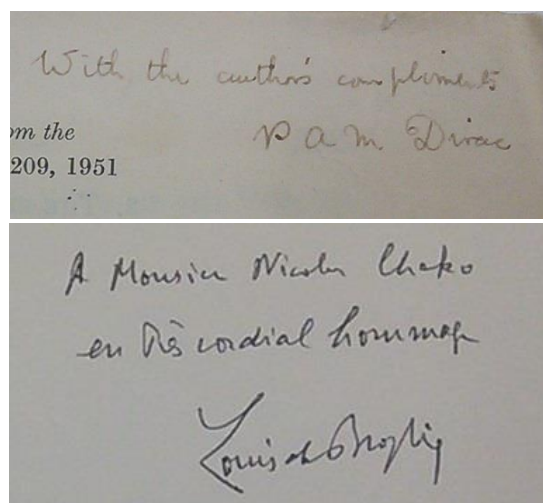 With the author's compliments
P A M Dirac
om the
209, 1951
A Monsieur Nicolas Chako
en très cordial hommage
Louis de Broglie